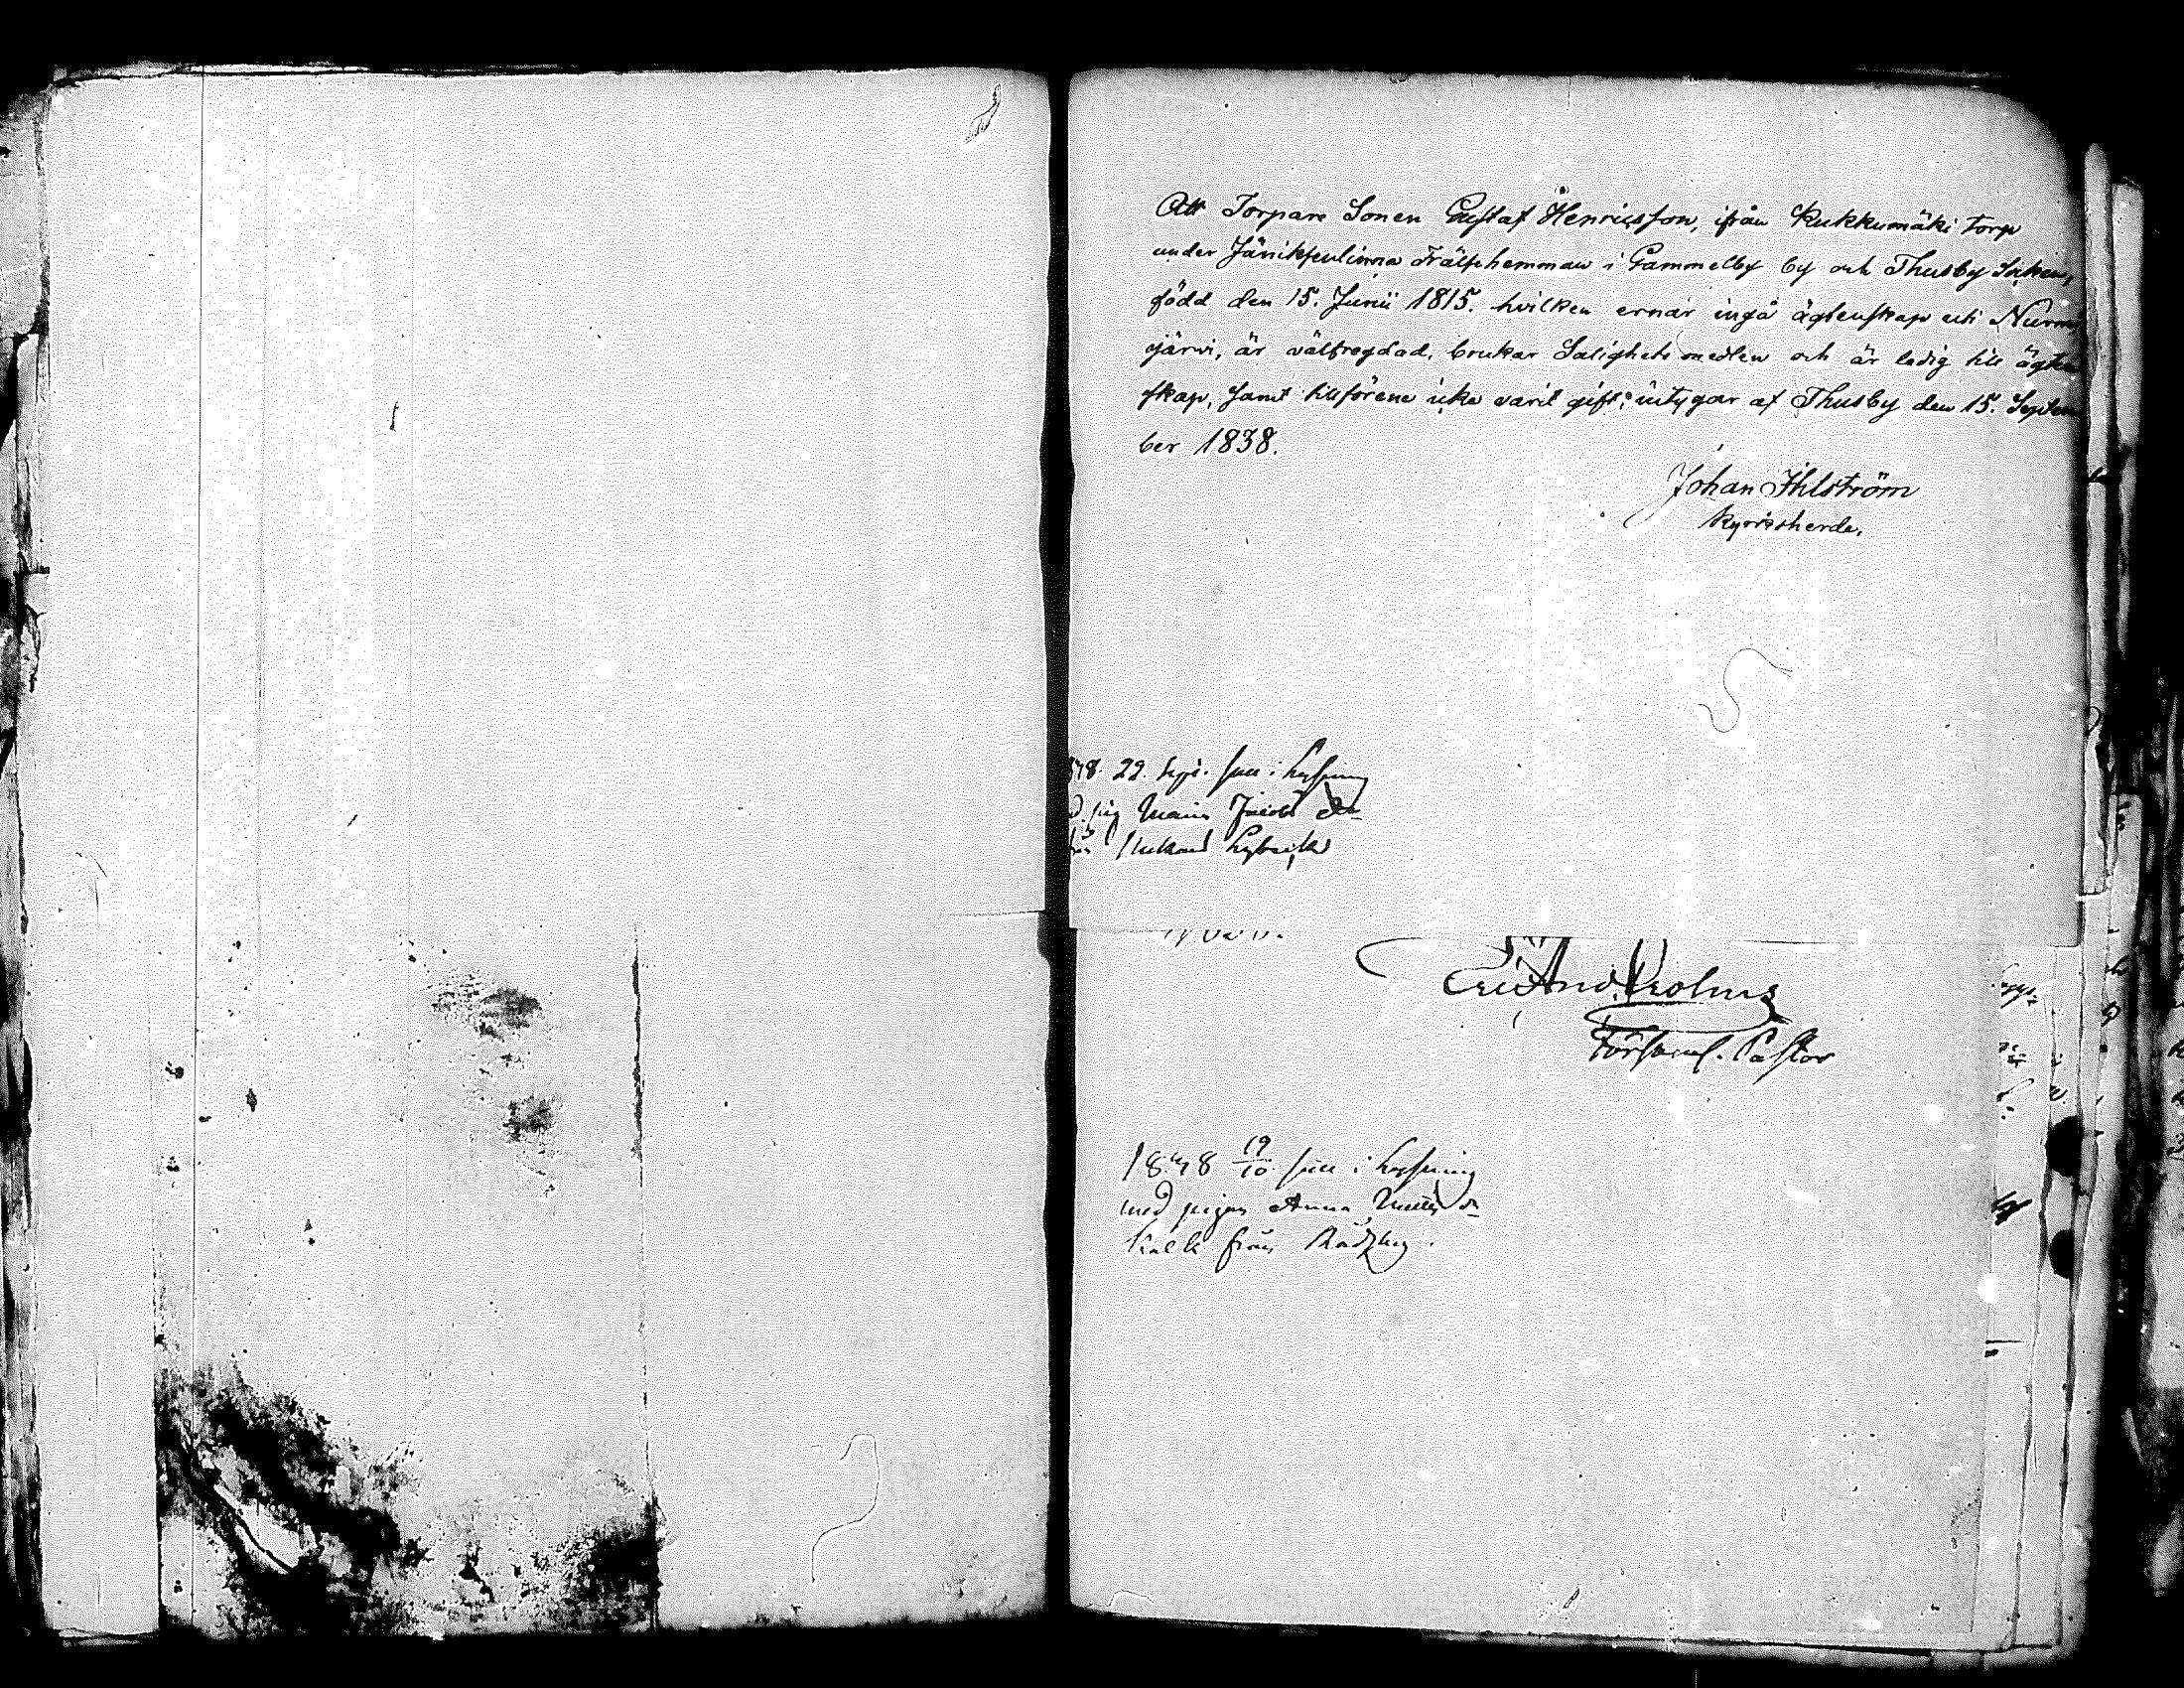 Att Torpare Sonen Gustaf Henricsson, ifrån Kukkumäki torp
under Jäniksenlinna Frälsehemman i Gammelby by och Thusby Socken,
född den 15. Junii 1815. hvilken ernar ingå ägtenskap uti Nurmi
järvi, är välfregdad, brukar Salighets medlen och är ledig till ägten
skap, samt tillförene icke varit gift; intygar af Thusby den 15. Septem
ber 1838.
Johan Ihlström
Kyrkoherde.
22. Sept. i Lysning
Maria Jacobs dr
Församl. Pastor
1838 19/10 i Lysning
med pigan Anna Matts dr
från